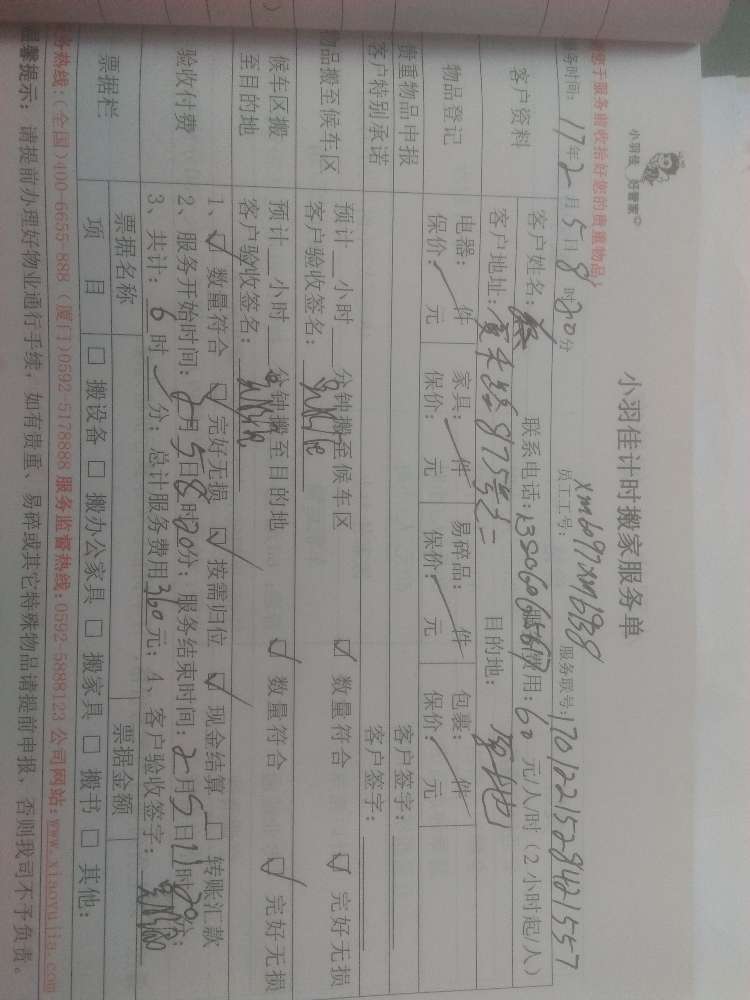 小羽佳 好管家
小羽佳计时搬家服务单
员工工号：xm6097xm6988
服务时间：17年2月5日8时20分 服务联号：170122152842155７
客户资料
客户姓名：
联系电话：
费用：60元/人/时（2小时起/人）
客户地址：
目的地：
物品登记
电器： 件 家具： 件 易碎品： 件 包裹： 件
保价： 元 保价： 元 保价： 元 保价： 元
贵重物品申报 客户签字：
客户特别承诺 客户签字：
物品搬至候车区
预计 小时 分钟搬至候车区 ☑ 数量符合 ☑ 完好无损
客户验收签名：
候车区搬至目的地
预计 小时 分钟搬至目的地 ☑ 数量符合 ☑ 完好无损
客户验收签名：
验收付费
1、☑ 数量符合 ☑ 完好无损 ☑ 按需归位 ☑ 现金结算 □ 转账汇款
2、服务开始时间：2月5日8时20分；服务结束时间：2月5日11时20分；
3、共计：6时 分；总计服务费用360元；4、客户验收签字：
票据栏
票据名称 票据金额
项 目 □ 搬设备 □ 搬办公家具 □ 搬家具 □ 搬书 □ 其他：
务热线：（全国）400-6655-888 （厦门）0592-5178888 服务监督热线：0592-5888123 公司网站：www.xiaoyujia.com
温馨提示：请提前办理好物业通行手续，如有贵重、易碎或其它特殊物品请提前申报，否则我司不予负责。